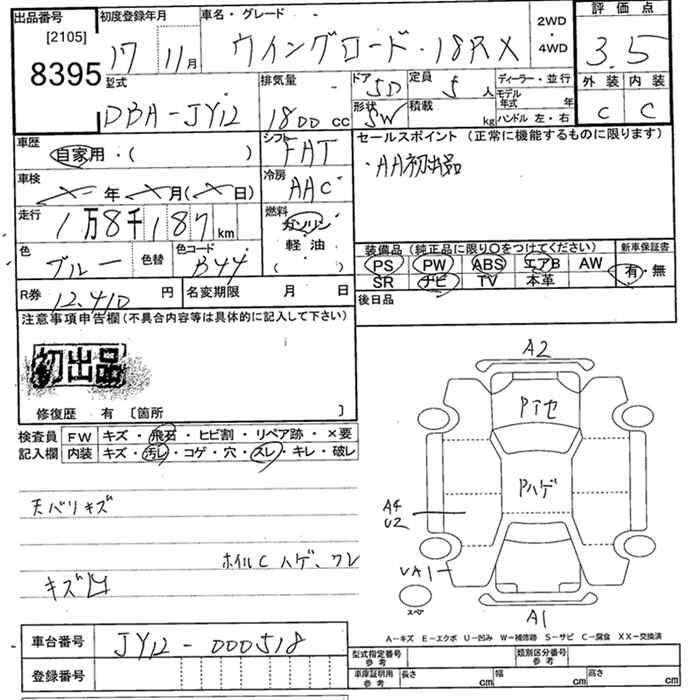 出品番号
[2105]
8395
初度登録年月
17年 11月
車名・グレード
ウイングロード・18RX
2WD
・
4WD
評価点
3.5
外装 内装
C C
型式
DBA-JY12
排気量
1800 cc
ドア
5D
定員
5人
形状
SW
積載
kg
ディーラー・並行
モデル年式 年
ハンドル 左・右
車歴
自家用・( )
シフト
FAT
セールスポイント (正常に機能するものに限ります)
・AA初出品
車検
年 月( 日)
冷房
AAC
走行
1万8千187km
燃料
ガソリン
軽油
( )
色
ブルー
色替
色コード
B44
装備品 (純正品に限り○をつけてください)
PS PW ABS エアB AW
SR ナビ TV 本革
新車保証書
有・無
R券
12,410円
名変期限 月 日
後日品
注意事項申告欄(不具合内容等は具体的に記入して下さい)
初出品
修復歴 有 〔箇所 〕
検査員記入欄
FW キズ・飛石・ヒビ割・リペア跡・×要
内装 キズ・汚レ・コゲ・穴・スレ・キレ・破レ
天バリキズ
ホイルC ハゲ、ワレ
キズ凹
A2
Pハゲ
A4
U2
UA1
スペア
A1
A-キズ E-エクボ U-凹み W-補修跡 S-サビ C-腐食 XX-交換済
車台番号
JY12-000518
登録番号
型式指定番号
参考
類別区分番号
参考
車庫証明用
参考
長さ cm
幅 cm
高さ cm